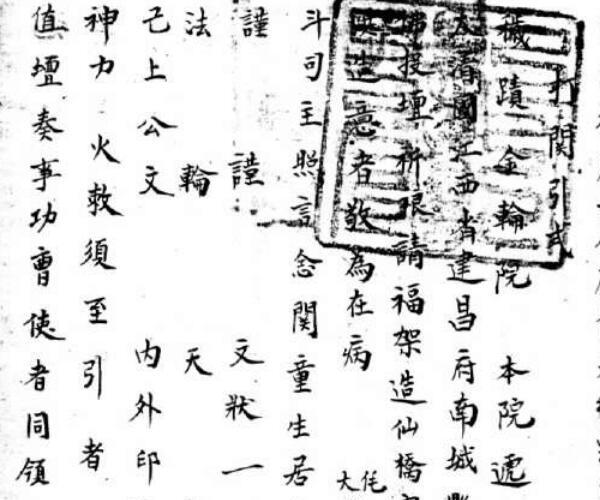 打關引式
穢蹟金輪院 本院遞
大清國江西省建昌府南城
佛投壇祈恩請福架造仙橋
造意者敬為在病 大
斗司主照言念關童生居
謹 謹 文狀一
法輪 天
已上公文 內外印
神力 火敕須至引者
值壇奏事功曹使者同領